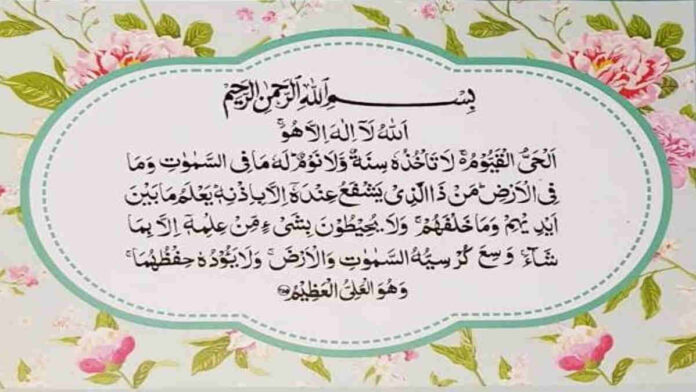 بِسْمِ اللهِ الرَّحْمٰنِ الرَّحِيْمِ
اَللهُ لَآ اِلٰهَ اِلَّا هُوَۚ
اَلْحَىُّ الْقَيُّوْمُ ۚ لَا تَاْخُذُهٗ سِنَةٌ وَّلَا نَوْمٌ ؕ لَهٗ مَا فِى السَّمٰوٰتِ وَمَا
فِى الْاَرْضِ ؕ مَنْ ذَا الَّذِىْ يَشْفَعُ عِنْدَهٗٓ اِلَّا بِاِذْنِهٖ ؕ يَعْلَمُ مَا بَيْنَ
اَيْدِيْهِمْ وَمَا خَلْفَهُمْ ۚ وَلَا يُحِيْطُوْنَ بِشَىْءٍ مِّنْ عِلْمِهٖٓ اِلَّا بِمَا
شَآءَ ۚ وَسِعَ كُرْسِيُّهُ السَّمٰوٰتِ وَالْاَرْضَ ۚ وَلَا يَـُٔوْدُهٗ حِفْظُهُمَا ۚ
وَهُوَ الْعَلِىُّ الْعَظِيْمُ